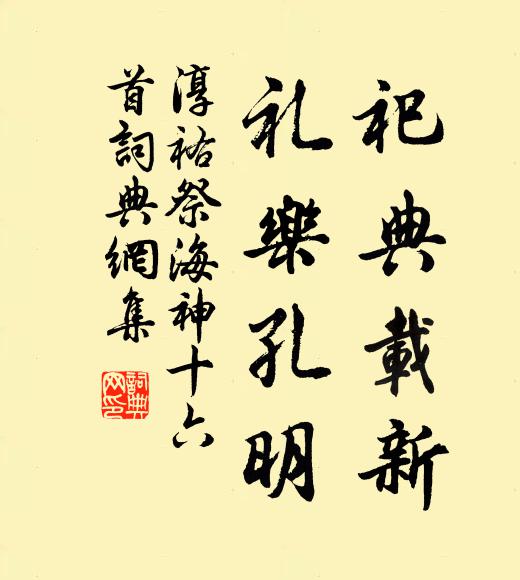 祀典載新
礼樂孔明
淳祐祭海神十六
首詞典網集
詞典
网印